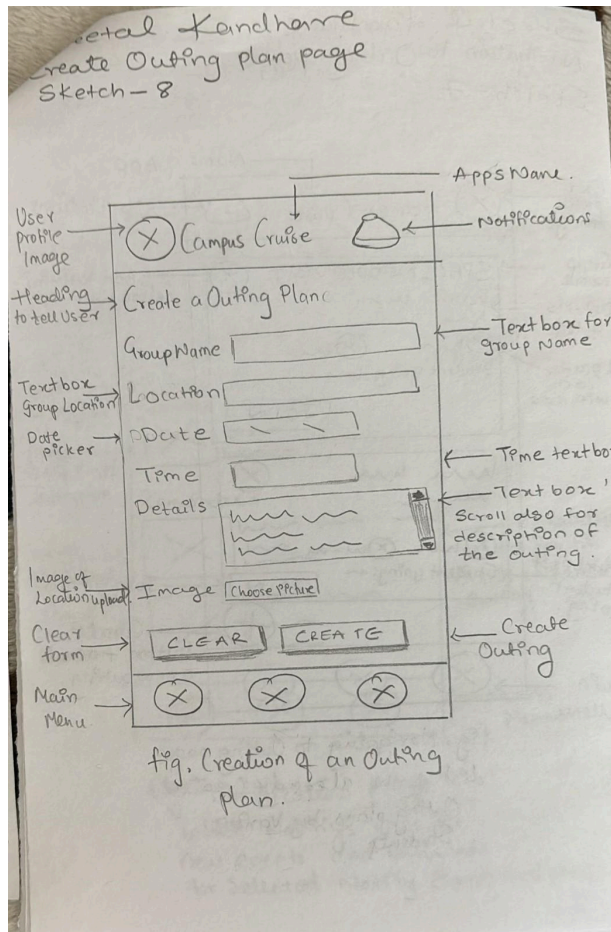 Kandhare
Create Outing plan page
Sketch - 8
App's Name.
User profile Image
Campus Cruise
Notifications
Heading to tell User
Create a Outing Plan
Group Name
Text box for group Name
Textbox Group Location
Location
Date picker
Date
Time
Time textbo
Details
Text box
Scroll also for description of the outing.
Image of Location upload.
Image
Choose picture
Clear form
CLEAR
CREATE
Create Outing
Main Menu
fig. Creation of an Outing
plan.